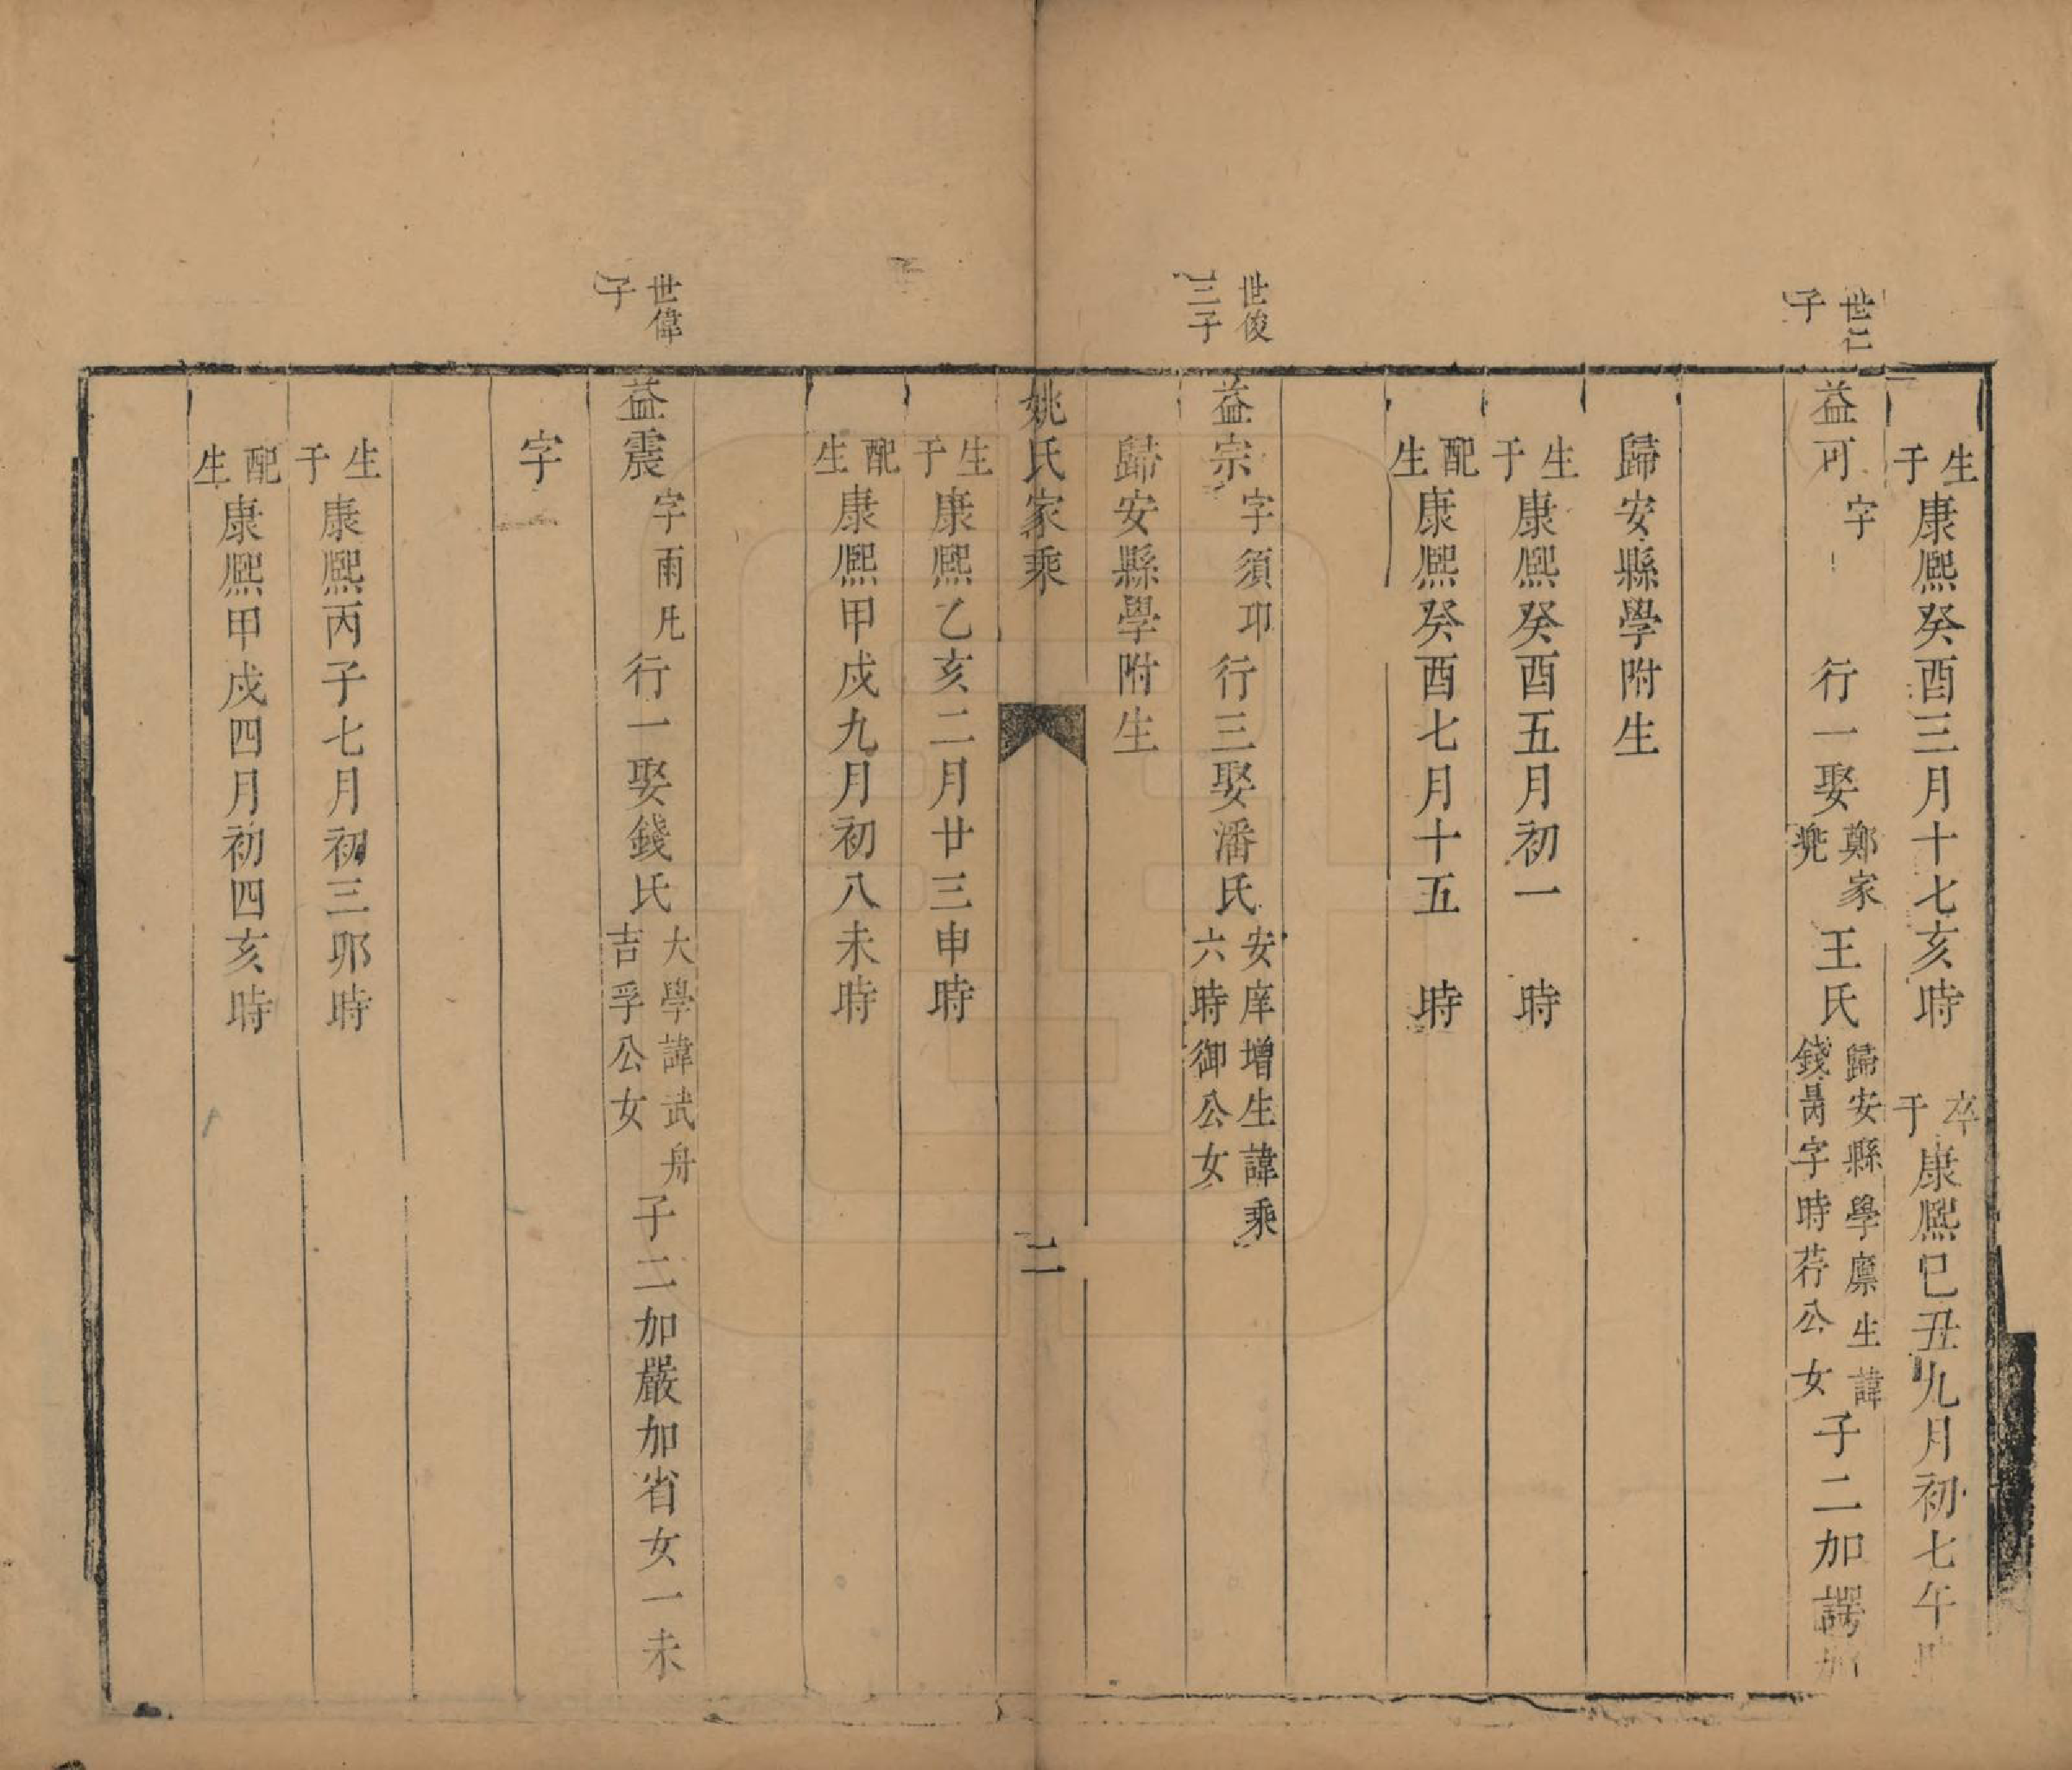 生于康熙癸酉三月十七亥時　卒于康熙巳丑九月初七午時
世仁子
益可字　行一娶鄭家兜王氏歸安縣學廪生諱錢昺字時荇公女子二加諤加
歸安縣學附生
生于康熙癸酉五月初一　時
配生康熙癸酉七月十五　時
世俊三子
益宗字須卭行三娶潘氏安庠增生諱乘六時御公女
歸安縣學附生
姚氏家乘　二
生于康熙乙亥二月廿三申時
配生康熙甲戌九月初八未時
世偉子
益震字雨凡行一娶錢氏大學諱武舟吉孚公女子二加嚴加省女一未
字
生于康熙丙子七月初三夘時
配生康熙甲戌四月初四亥時